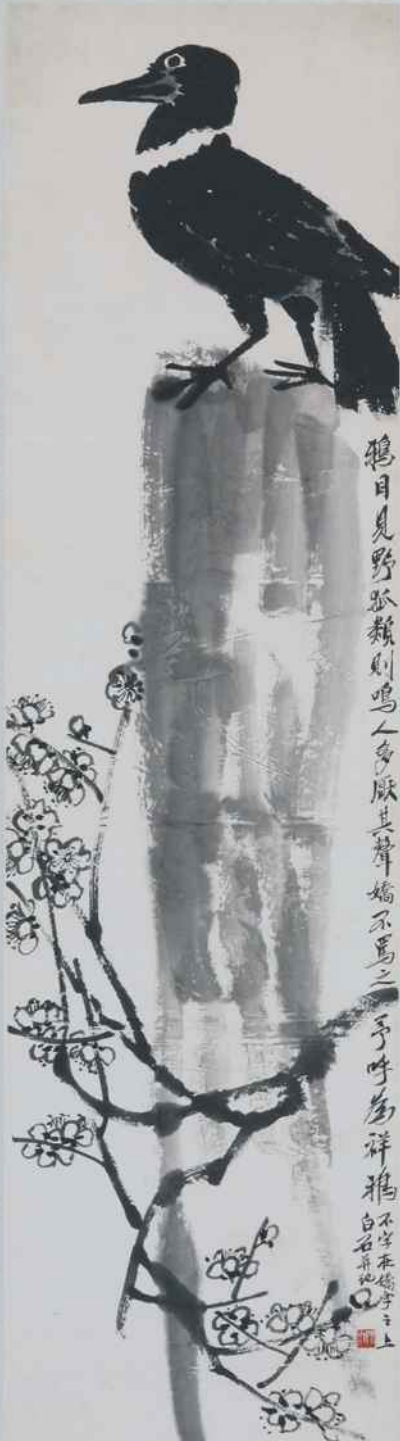 鴉目見野狐類則鳴人多厭其聲嬌不罵之予呼為祥鴉
不字在嬌字之上
白石并記